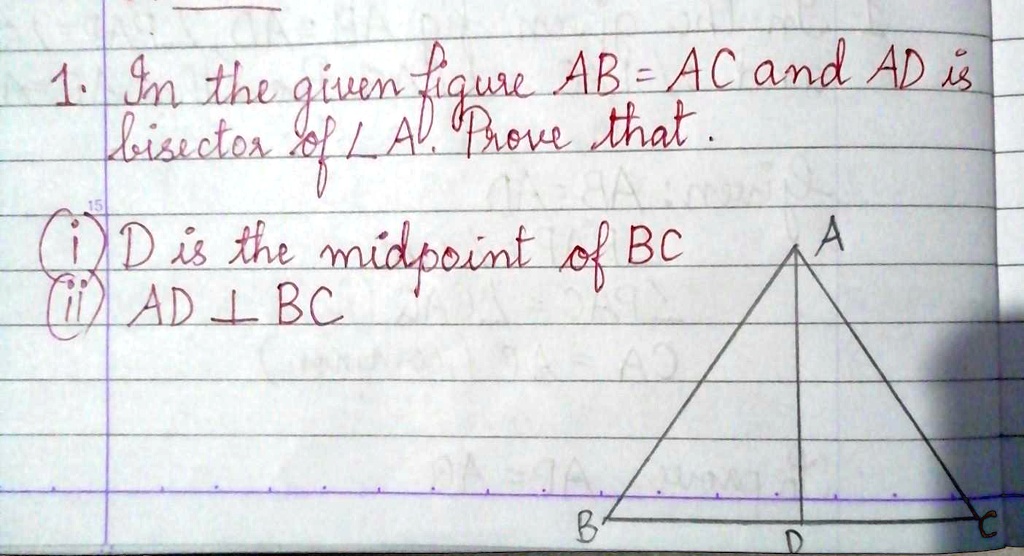 1. In the given figure AB = AC and AD is
bisector of ∠A. Prove that.
15
(i) D is the midpoint of BC
(ii) AD ⊥ BC
A
B
D
C